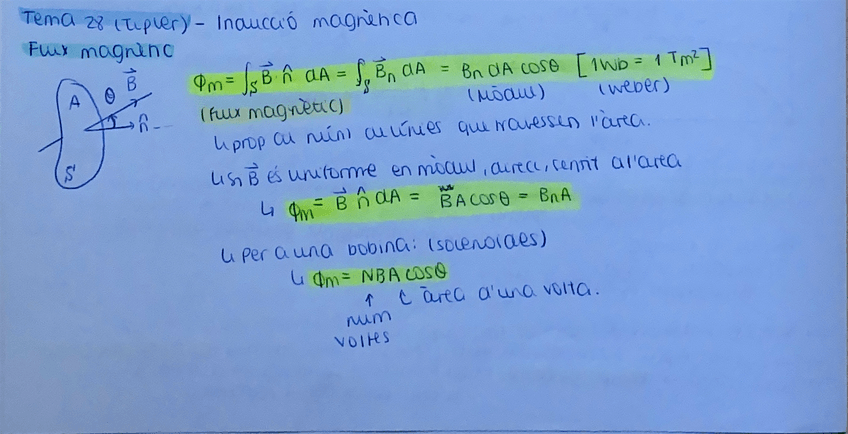 Tema 28 (Tipler) - Inducció magnètica
Flux magnètic
Φm = ∫s B⃗ · n̂ dA = ∫s B⃗n dA = Bn dA cosθ [1Wb = 1 Tm²]
(Flux magnètic) (Mòdul) (weber)
↳ prop al núm de línies que travessen l'àrea.
↳ si B⃗ és uniforme en mòdul, direcc, sentit a l'àrea
↳ Φm = B⃗ n̂ dA = B A cosθ = Bn A
↳ Per a una bobina: (solenoides)
↳ Φm = NBA cosθ
↑ ↳ àrea d'una volta.
num
voltes
A θ B⃗
n̂
S